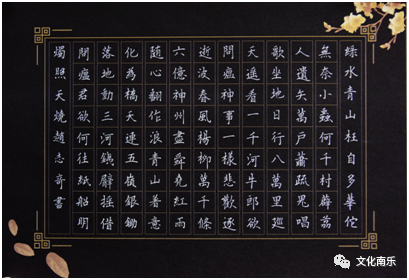 綠水青山枉自多華佗
無奈小蟲何千村薜荔
人遺矢萬戶蕭疏鬼唱
歌坐地日行八萬里巡
天遙看一千河牛郎欲
問瘟神事一樣悲歡逐
逝波春風楊柳萬千條
六億神州盡舜堯紅雨
隨心翻作浪青山着意
化為橋天連五嶺銀鋤
落地動三河鐵臂搖借
問瘟君欲何往紙船明
燭照天燒趙志奇書
文化南乐